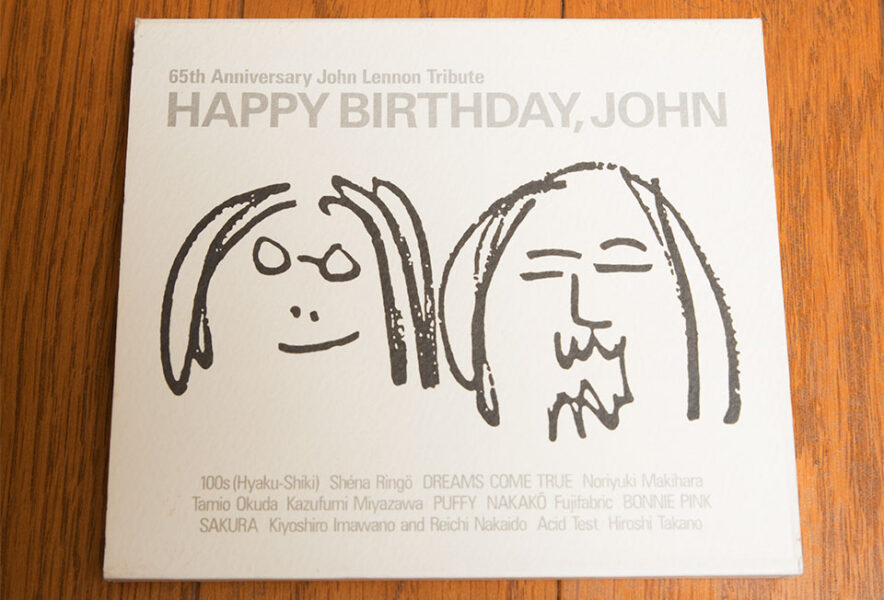 65th Anniversary John Lennon Tribute
HAPPY BIRTHDAY, JOHN
100s (Hyaku-Shiki) Shéna Ringö DREAMS COME TRUE Noriyuki Makihara
Tamio Okuda Kazufumi Miyazawa PUFFY NAKAKŌ Fujifabric BONNIE PINK
SAKURA Kiyoshiro Imawano and Reichi Nakaido Acid Test Hiroshi Takano